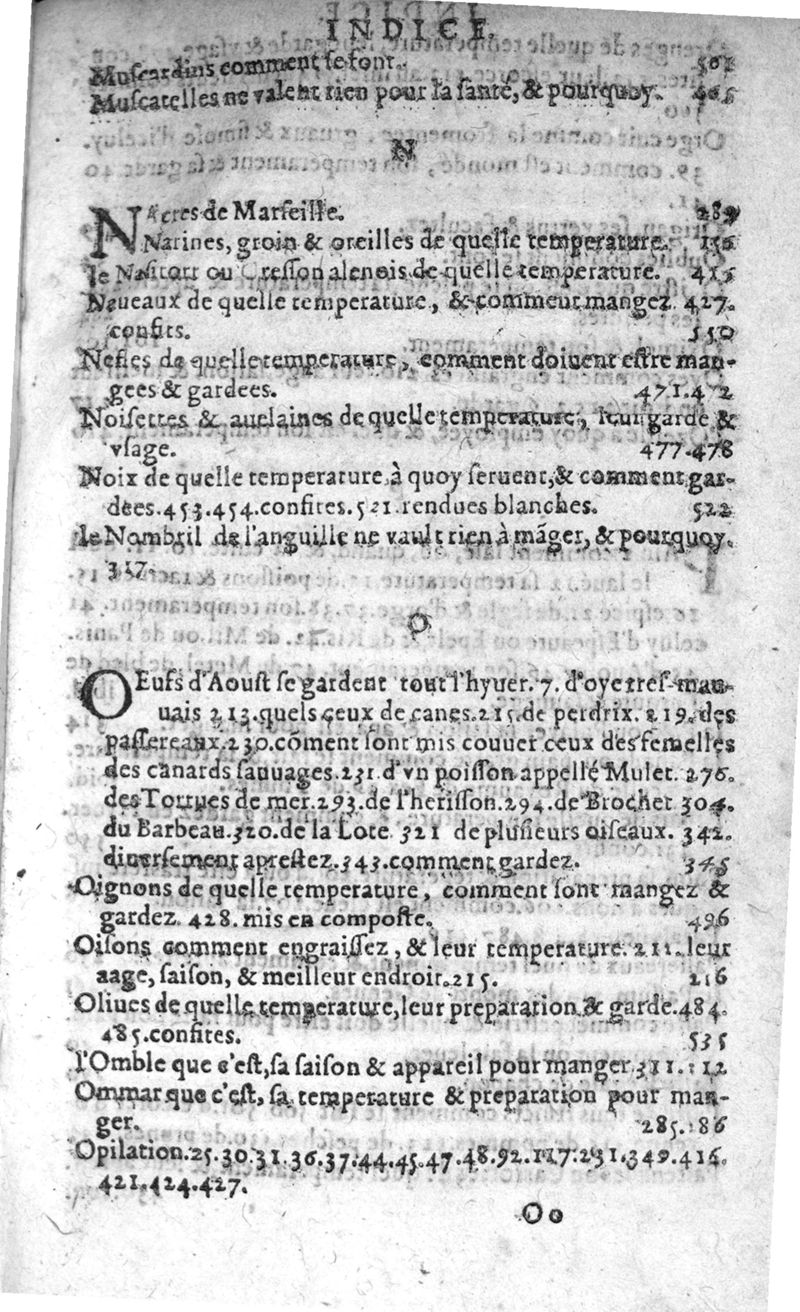 INDICE.
Muſcardins comment ſe font. 501
Muſcatelles ne valent rien pour la ſanté, & pourquoy. 465
N
NAcres de Marſeille. 289
Narines, groin & oreilles de quelle temperature. 156
le Naſitort ou Creſſon alenois de quelle temperature. 415
Naueaux de quelle temperature, & comment mangez. 427.
confits. 550
Nefles de quelle temperature, comment doiuent eſtre man-
gees & gardees. 471.472
Noiſettes & auelaines de quelle temperature, leur garde &
vſage. 477.478
Noix de quelle temperature à quoy ſeruent, & comment gar-
dées.453.454.confites.521.rendues blanches. 522
le Nombril de l'anguille ne vault rien à mãger, & pourquoy.
317.
O
OEufs d'Aouſt ſe gardent tout l'hyuer.7. d'oye treſ-mau-
uais 213.quels ceux de canes.215.de perdrix.219.des
paſſereaux.230.cõment ſont mis couuer ceux des femelles
des canards ſauuages.231.d'vn poiſſon appellé Mulet. 276.
des Tortues de mer.293.de l'heriſſon.294.de Brochet 304.
du Barbeau.320.de la Lote 321 de pluſieurs oiſeaux. 342.
diuerſement apreſtez.343.comment gardez. 345
Oignons de quelle temperature, comment ſont mangez &
gardez. 428. mis en compoſte. 496
Oiſons comment engraiſſez, & leur temperature. 211.leur
aage, ſaiſon, & meilleur endroit.215. 216
Oliues de quelle temperature, leur preparation & garde.484.
485.confites. 535
l'Omble que c'eſt, ſa ſaiſon & appareil pour manger 311.312
Ommar que c'eſt, ſa temperature & preparation pour man-
ger. 285.286
Opilation.25.30.31.36.37.44.45.47.48.92.117.231.349.416.
421.424.427.
Oo